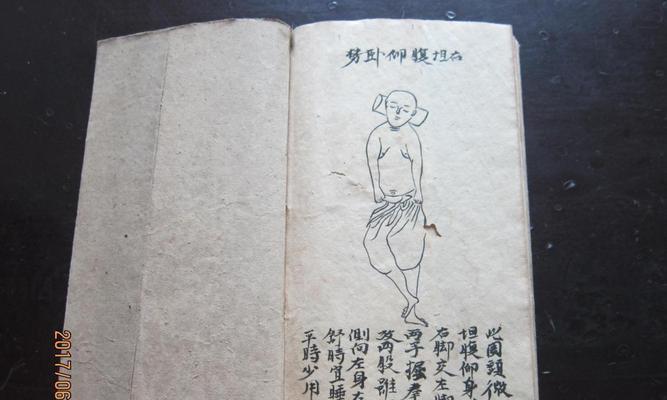 右坦腹仰卧势
此圖頭微
坦腹仰身
右脚交左脚
手握
两股雖
側向左身
舒時宜睡
平時少用
2017/06